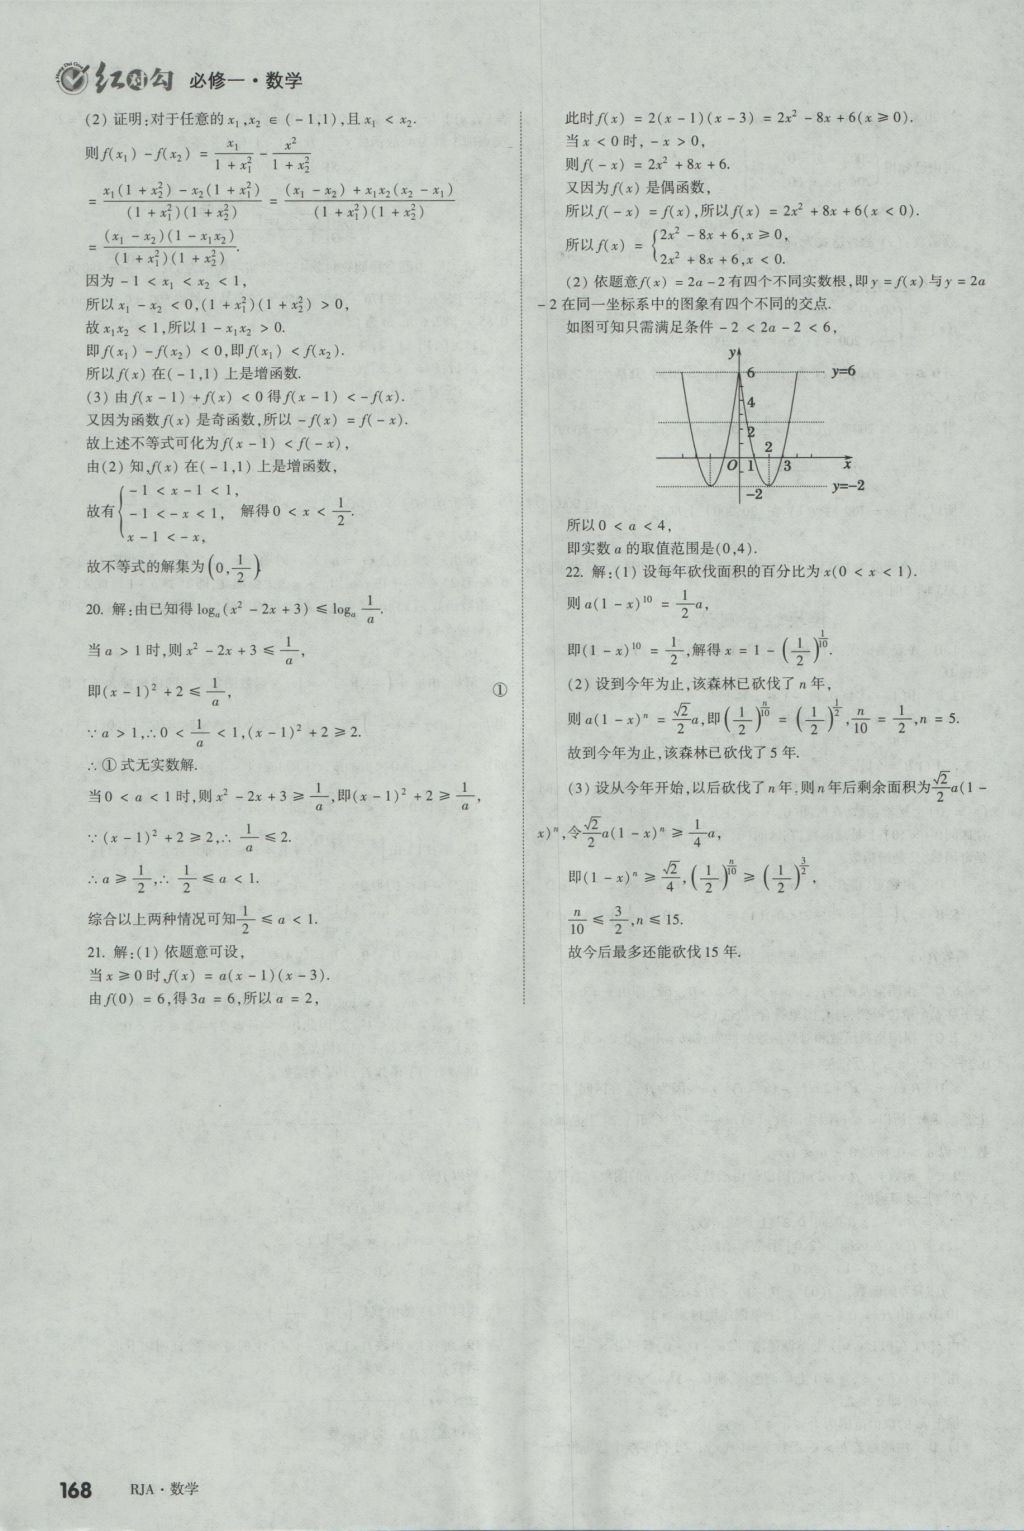 红对勾 必修一·数学
(2) 证明:对于任意的 x₁,x₂ ∈ (-1,1),且 x₁ < x₂.
则 f(x₁) - f(x₂) = x₁/(1+x₁²) - x²/(1+x₂²)
= [x₁(1+x₂²) - x₂(1+x₁²)]/[(1+x₁²)(1+x₂²)] = [(x₁-x₂)+x₁x₂(x₂-x₁)]/[(1+x₁²)(1+x₂²)]
= [(x₁-x₂)(1-x₁x₂)]/[(1+x₁²)(1+x₂²)].
因为 -1 < x₁ < x₂ < 1,
所以 x₁ - x₂ < 0,(1+x₁²)(1+x₂²) > 0,
故 x₁x₂ < 1,所以 1 - x₁x₂ > 0.
即 f(x₁) - f(x₂) < 0,即 f(x₁) < f(x₂).
所以 f(x) 在(-1,1) 上是增函数.
(3) 由 f(x-1) + f(x) < 0 得 f(x-1) < -f(x).
又因为函数 f(x) 是奇函数,所以 -f(x) = f(-x).
故上述不等式可化为 f(x-1) < f(-x),
由(2) 知,f(x) 在(-1,1) 上是增函数,
故有{ -1 < x-1 < 1, -1 < -x < 1, x-1 < -x, 解得 0 < x < 1/2.
故不等式的解集为(0,1/2)
20. 解:由已知得 logₐ(x² - 2x + 3) ≤ logₐ 1/a.
当 a > 1 时,则 x² - 2x + 3 ≤ 1/a,
即(x-1)² + 2 ≤ 1/a, ①
∵ a > 1,∴ 0 < 1/a < 1,(x-1)² + 2 ≥ 2.
∴ ① 式无实数解.
当 0 < a < 1 时,则 x² - 2x + 3 ≥ 1/a,即(x-1)² + 2 ≥ 1/a,
∵ (x-1)² + 2 ≥ 2,∴ 1/a ≤ 2.
∴ a ≥ 1/2,∴ 1/2 ≤ a < 1.
综合以上两种情况可知 1/2 ≤ a < 1.
21. 解:(1) 依题意可设,
当 x ≥ 0 时,f(x) = a(x-1)(x-3).
由 f(0) = 6,得 3a = 6,所以 a = 2,
此时 f(x) = 2(x-1)(x-3) = 2x² - 8x + 6(x ≥ 0).
当 x < 0 时, -x > 0,
则 f(-x) = 2x² + 8x + 6.
又因为 f(x) 是偶函数,
所以 f(-x) = f(x),所以 f(x) = 2x² + 8x + 6(x < 0).
所以 f(x) = { 2x² - 8x + 6,x ≥ 0, 2x² + 8x + 6,x < 0.
(2) 依题意 f(x) = 2a - 2 有四个不同实数根,即 y = f(x) 与 y = 2a
- 2 在同一坐标系中的图象有四个不同的交点.
如图可知只需满足条件 -2 < 2a - 2 < 6,
y
6 y=6
4
2
2
O 1 3 x
-2 y=-2
所以 0 < a < 4,
即实数 a 的取值范围是(0,4).
22. 解:(1) 设每年砍伐面积的百分比为 x(0 < x < 1).
则 a(1-x)¹⁰ = 1/2 a,
即(1-x)¹⁰ = 1/2,解得 x = 1 - (1/2)^(1/10).
(2) 设到今年为止,该森林已砍伐了 n 年,
则 a(1-x)ⁿ = √2/2 a,即(1/2)^(n/10) = (1/2)^(1/2), n/10 = 1/2,n = 5.
故到今年为止,该森林已砍伐了 5 年.
(3) 设从今年开始,以后砍伐了 n 年,则 n 年后剩余面积为 √2/2 a(1 -
x)ⁿ,令 √2/2 a(1-x)ⁿ ≥ 1/4 a,
即(1-x)ⁿ ≥ √2/4,(1/2)^(n/10) ≥ (1/2)^(3/2),
n/10 ≤ 3/2,n ≤ 15.
故今后最多还能砍伐 15 年.
168 RJA·数学